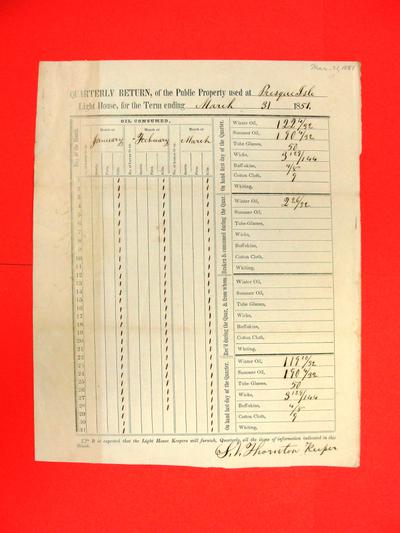 Mar. 31, 1851
QUARTERLY RETURN, of the Public Property used at Presque Isle
Light House, for the Term ending March 31 1851.
OIL CONSUMED.
Day of the Month.
Month of January
Month of February
Month of March
On hand first day of the Quarter.
Winter Oil, 122 4/32
Summer Oil, 190 4/32
Tube Glasses, 50
Wicks, 3 129/144
Buffskins, 4/5
Cotton Cloth, 9
Whiting,
Broken & consumed during the Quar.
Winter Oil, 2 26/32
Summer Oil,
Tube Glasses,
Wicks,
Buffskins,
Cotton Cloth,
Whiting,
Rec'd during the Quar, & from whom
Winter Oil,
Summer Oil,
Tube Glasses,
Wicks,
Buffskins,
Cotton Cloth,
Whiting,
On hand last day of the Quarter.
Winter Oil, 119 10/32
Summer Oil, 190 4/32
Tube Glasses, 50
Wicks, 3 129/144
Buffskins, 4/5
Cotton Cloth, 9
Whiting,
It is expected that the Light House Keepers will furnish, Quarterly, all the items of information indicated in this
Blank.
Thornton Keeper